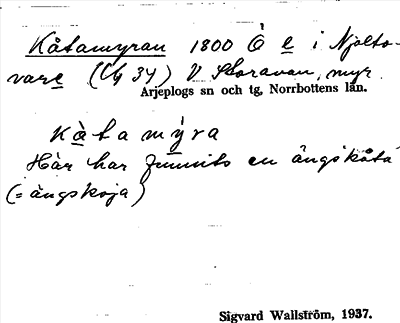 Kåtamyran 1800 Ö e i Njalta-
vare (Lg 34) V Storavan, myr.
Arjeplogs sn och tg, Norrbottens län.
kå̀tamy̍ra
Här har funnits en ängskåta
(= ängskoja)
Sigvard Wallström, 1937.